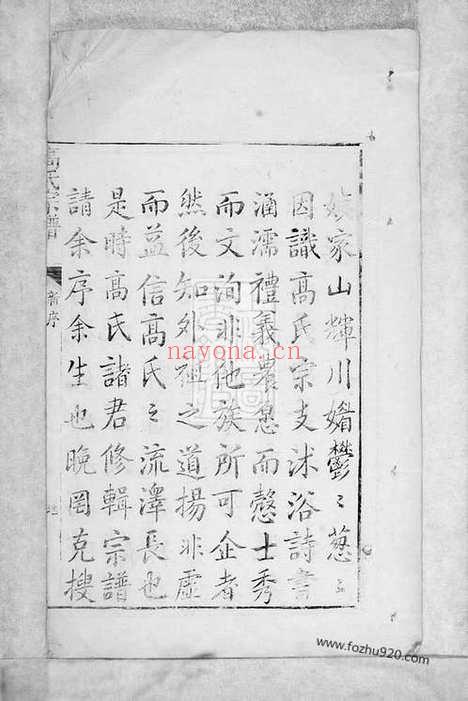 家山輝川媚鬱〻葱〻
因識高氏宗支沐浴詩書
涵濡禮義農愨而慤士秀
而文洵非他族所可企者
然後知外祖之道揚非虛
而益信高氏之流澤長也
是時高氏諸君修輯宗譜
請余序余生也晚罔克搜
高氏宗譜
新序
nayona.cn
www.fozhu920.com